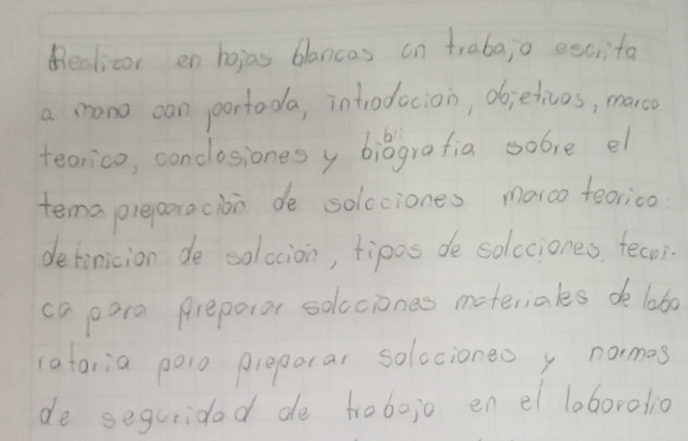 Realizar en hojas blancas un trabajo escrita
a mano con portada, introducion, objetivos, marco
teorico, conclusiones y bibiografia sobre el
tema preparación de soluciones marco teorico:
definicion de solucion, tipos de soluciones, tecni-
ca para preparar soluciones materiales de labo
ratoria para preparar soluciones y normas
de seguridad de trabajo en el laboratio